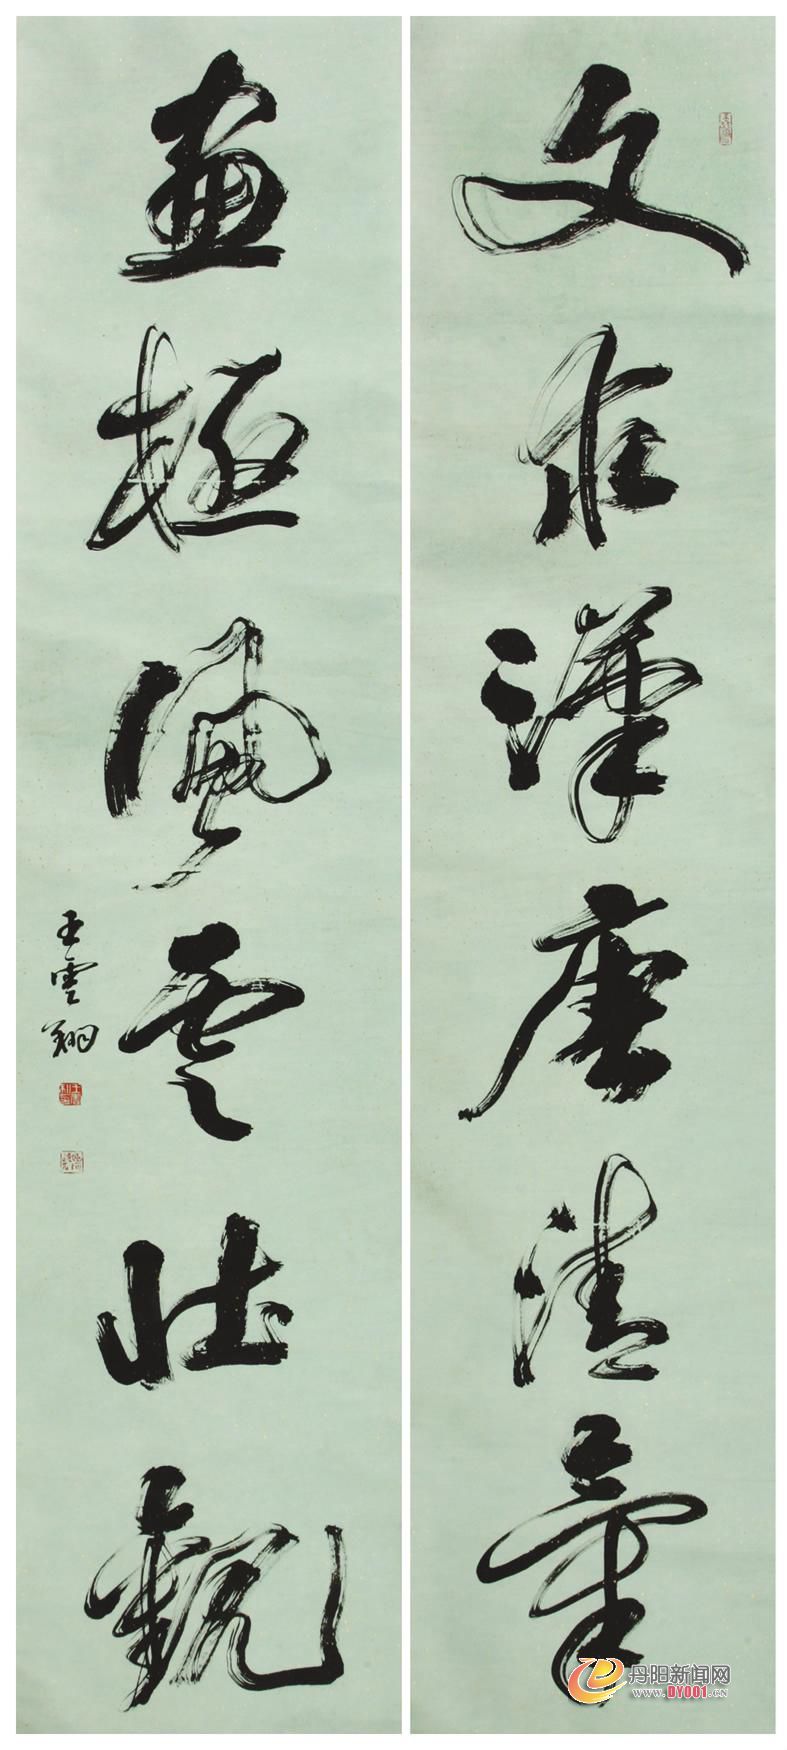 文在漢唐清氣
畫極風雲壯觀
王雲翔
丹阳新闻网
WWW.DY001.CN